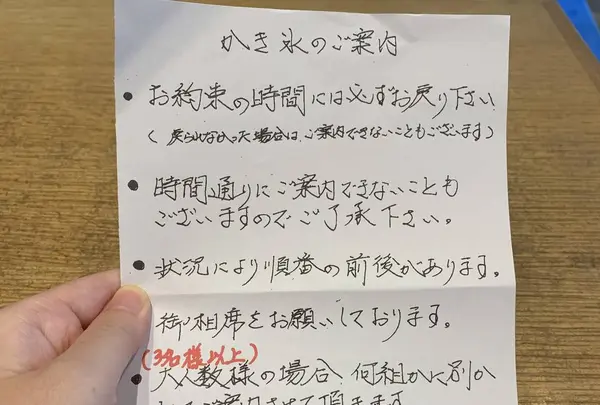 かき氷のご案内
● お約束の時間には必ずお戻り下さい
(戻られなかった場合は、ご案内できないこともございます)
● 時間通りにご案内できないことも
ございますのでご了承下さい。
● 状況により順番の前後があります。
御相席をお願いしております。
(3名様以上)
● 大人数様の場合、何組かに別か
てご案内させて頂きます